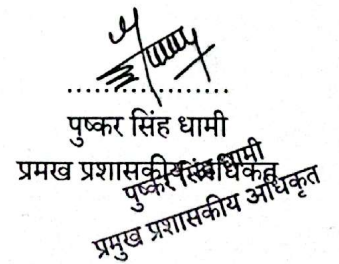 पुष्कर सिंह धामी
प्रमख प्रशासकीय अधिकृत
पुष्कर सिंह धामी
प्रमुख प्रशासकीय अधिकृत